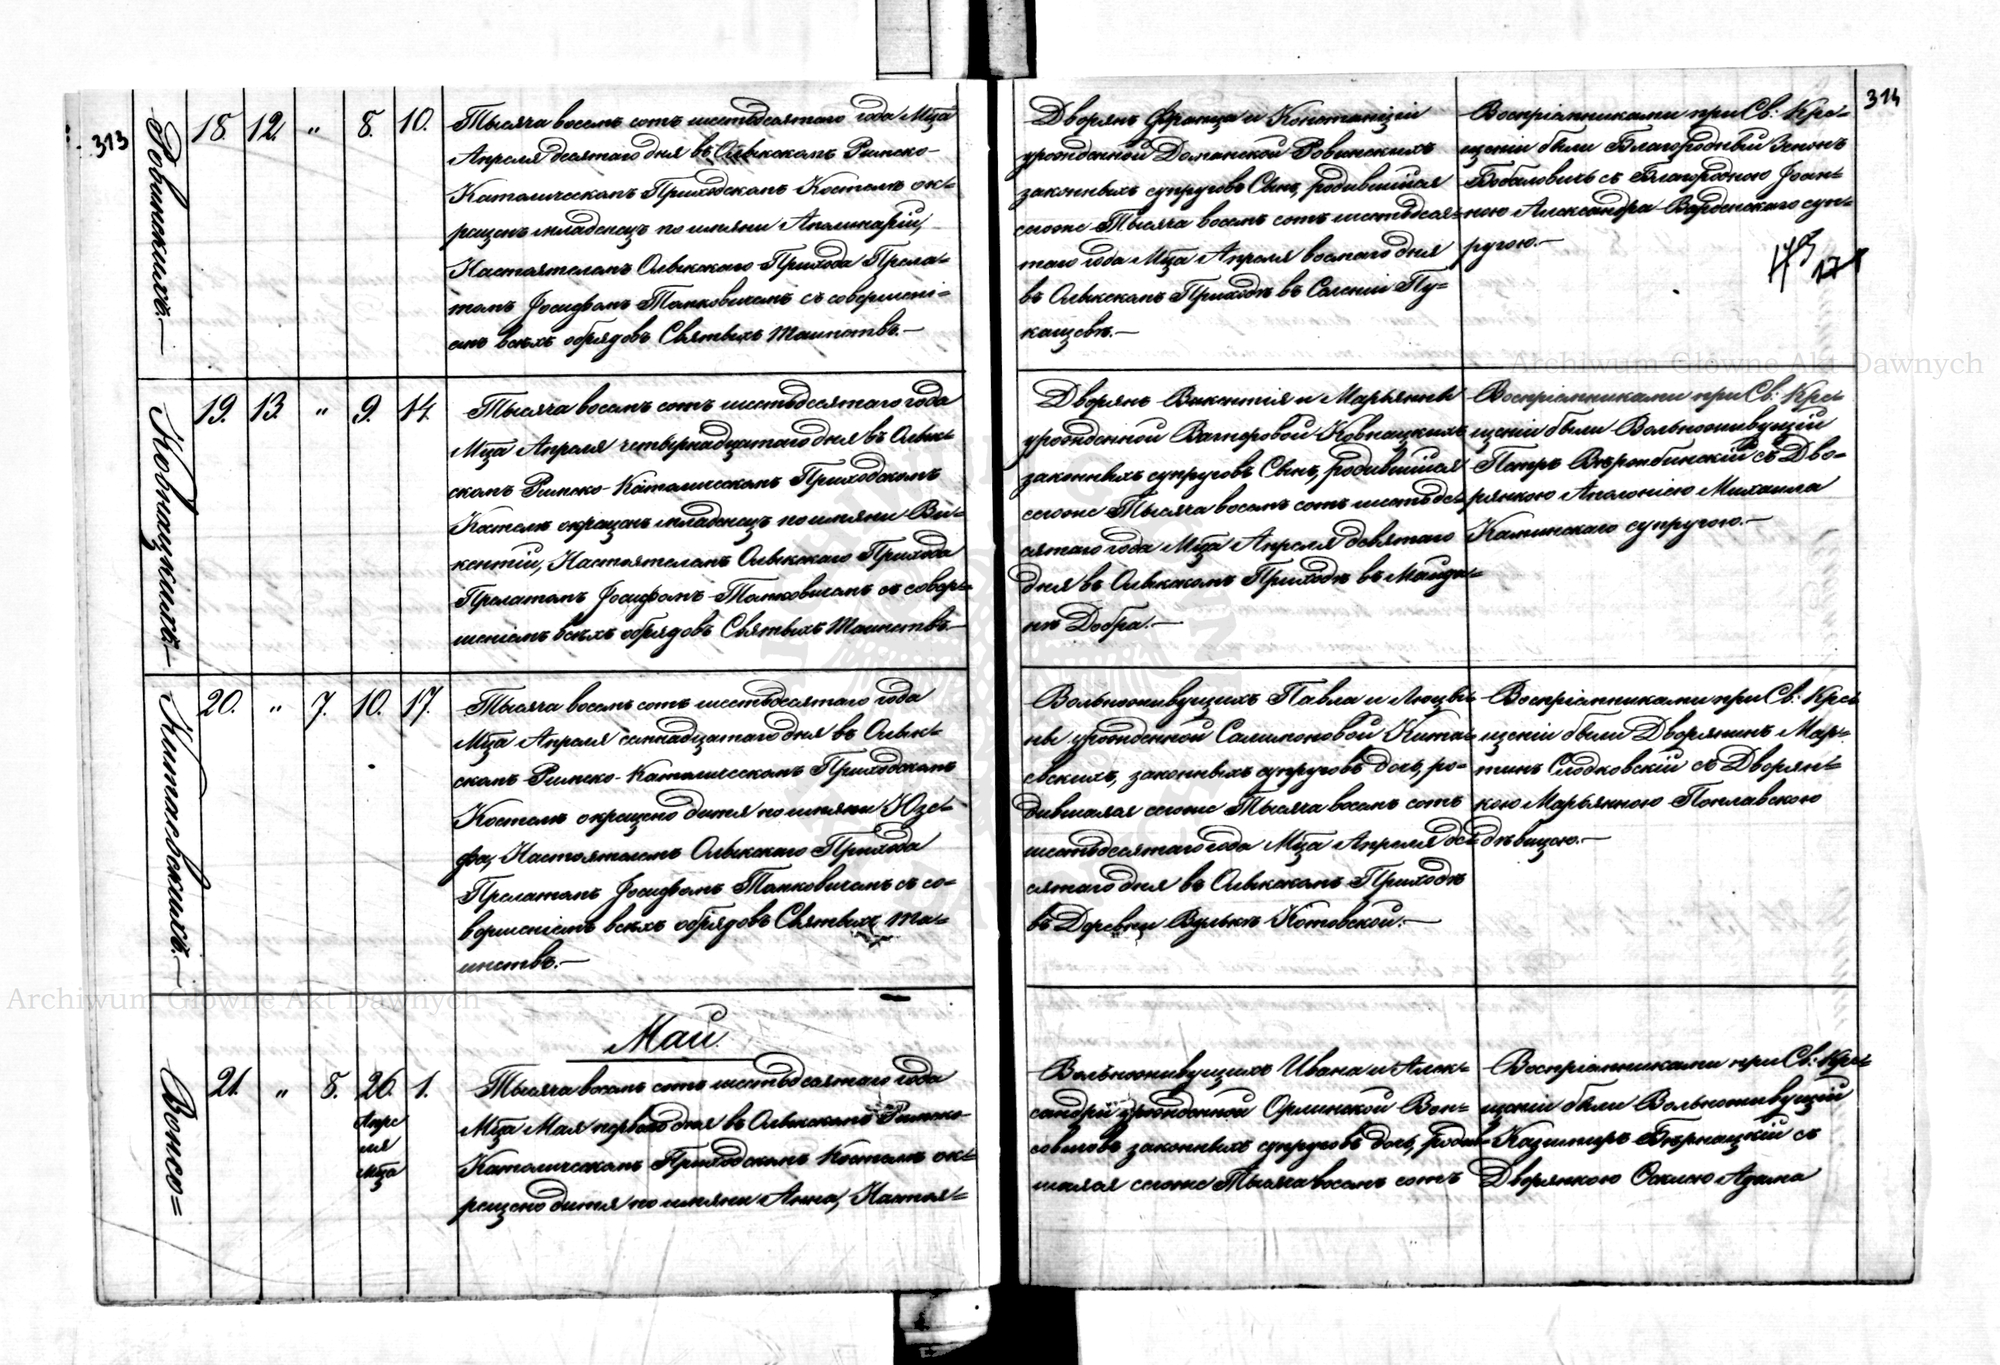 313
Ровинскихъ.—
18 12 „ 8. 10.
Тысяча восемь сотъ шестьдесятаго года Мца
Апреля десятаго дня въ Олыкскомъ Римско-
Католическомъ Приходскомъ Костеле ок-
рещенъ младенецъ по имяни Аполинарій,
Настоятелемъ Олыкскаго Прихода Прела-
томъ Іосифомъ Томковичемъ съ совершені-
емъ всехъ обрядовъ Святыхъ Таинствъ.—
Дворянъ Франца и Констанціи
урожденной Доманской Ровинскихъ
законныхъ супруговъ Сынъ, родившійся
сегоже Тысяча восемь сотъ шестьдеся-
таго года Мца Апреля восмаго дня
въ Олыкскомъ Приходе въ Селеніи Пу-
кащевъ.—
Воспріемниками при Св: Кре-
щеніи были Благородный Зенонъ
Бобаловичъ съ Благородною Іоан-
ною Александра Ворденскаго суп-
ругою.—
314
Ковнацкихъ.—
19. 13. „ 9. 14.
Тысяча восемь сотъ шестьдесятаго года
Мца Апреля четырнадцатаго дня въ Олык-
скомъ Римско-Католическомъ Приходскомъ
Костеле окрещенъ младенецъ по имяни Ви-
кентій, Настоятелемъ Олыкскаго Прихода
Прелатомъ Іосифомъ Томковичемъ съ совер-
шеніемъ всехъ обрядовъ Святыхъ Таинствъ.—
Дворянъ Викентія и Марьянны
урожденной Вагнеровой Ковнацкихъ
законныхъ супруговъ Сынъ, родившійся
сегоже Тысяча восемь сотъ шестьде-
сятаго года Мца Апреля девятаго
дня въ Олыкскомъ Приходе въ Майда-
не Добра.—
Воспріемниками при Св: Кре-
щеніи были Вольноживущій
Петръ Верембинскій съ Дво-
рянкою Аполоніею Михаила
Каминскаго супругою.—
Китаевскихъ.—
20. „ 7. 10. 17.
Тысяча восемь сотъ шестьдесятаго года
Мца Апреля семнадцатаго дня въ Олык-
скомъ Римско-Католическомъ Приходскомъ
Костеле окрещено дитя по имяни Юзе-
фа, Настоятелемъ Олыкскаго Прихода
Прелатомъ Іосифомъ Томковичемъ съ со-
вершеніемъ всехъ обрядовъ Святыхъ Та-
инствъ.—
Вольноживущихъ Павла и Люцы-
ны урожденной Салимоновой Кита-
евскихъ, законныхъ супруговъ дочь, ро-
дившаяся сегоже Тысяча восемь сотъ
шестьдесятаго года Мца Апреля де-
сятаго дня въ Олыкскомъ Приходе
въ Деревни Вульке Котовской.—
Воспріемниками при Св: Кре-
щеніи были Дворянинъ Мар-
тинъ Слодковскій съ Дворян-
кою Марьянною Поплавскою
девицею.—
Вонсо=
21. „ 8. 26. 1.
Апре
ля
Мца
Май.
Тысяча восемь сотъ шестьдесятаго года
Мца Мая перваго дня въ Олыкскомъ Римско-
Католическомъ Приходскомъ Костеле ок-
рещено дитя по имяни Анна, Настоя-
Вольноживущихъ Ивана и Алек-
сандры урожденной Орлинской Вон-
совичовъ законныхъ супруговъ дочь, родив-
шаяся сегоже Тысяча восемь сотъ
Воспріемниками при Св: Кре-
щеніи были Вольноживущій
Казимиръ Бернацкій съ
Дворянкою Адама
Archiwum Główne Akt Dawnych
Archiwum Główne Akt Dawnych